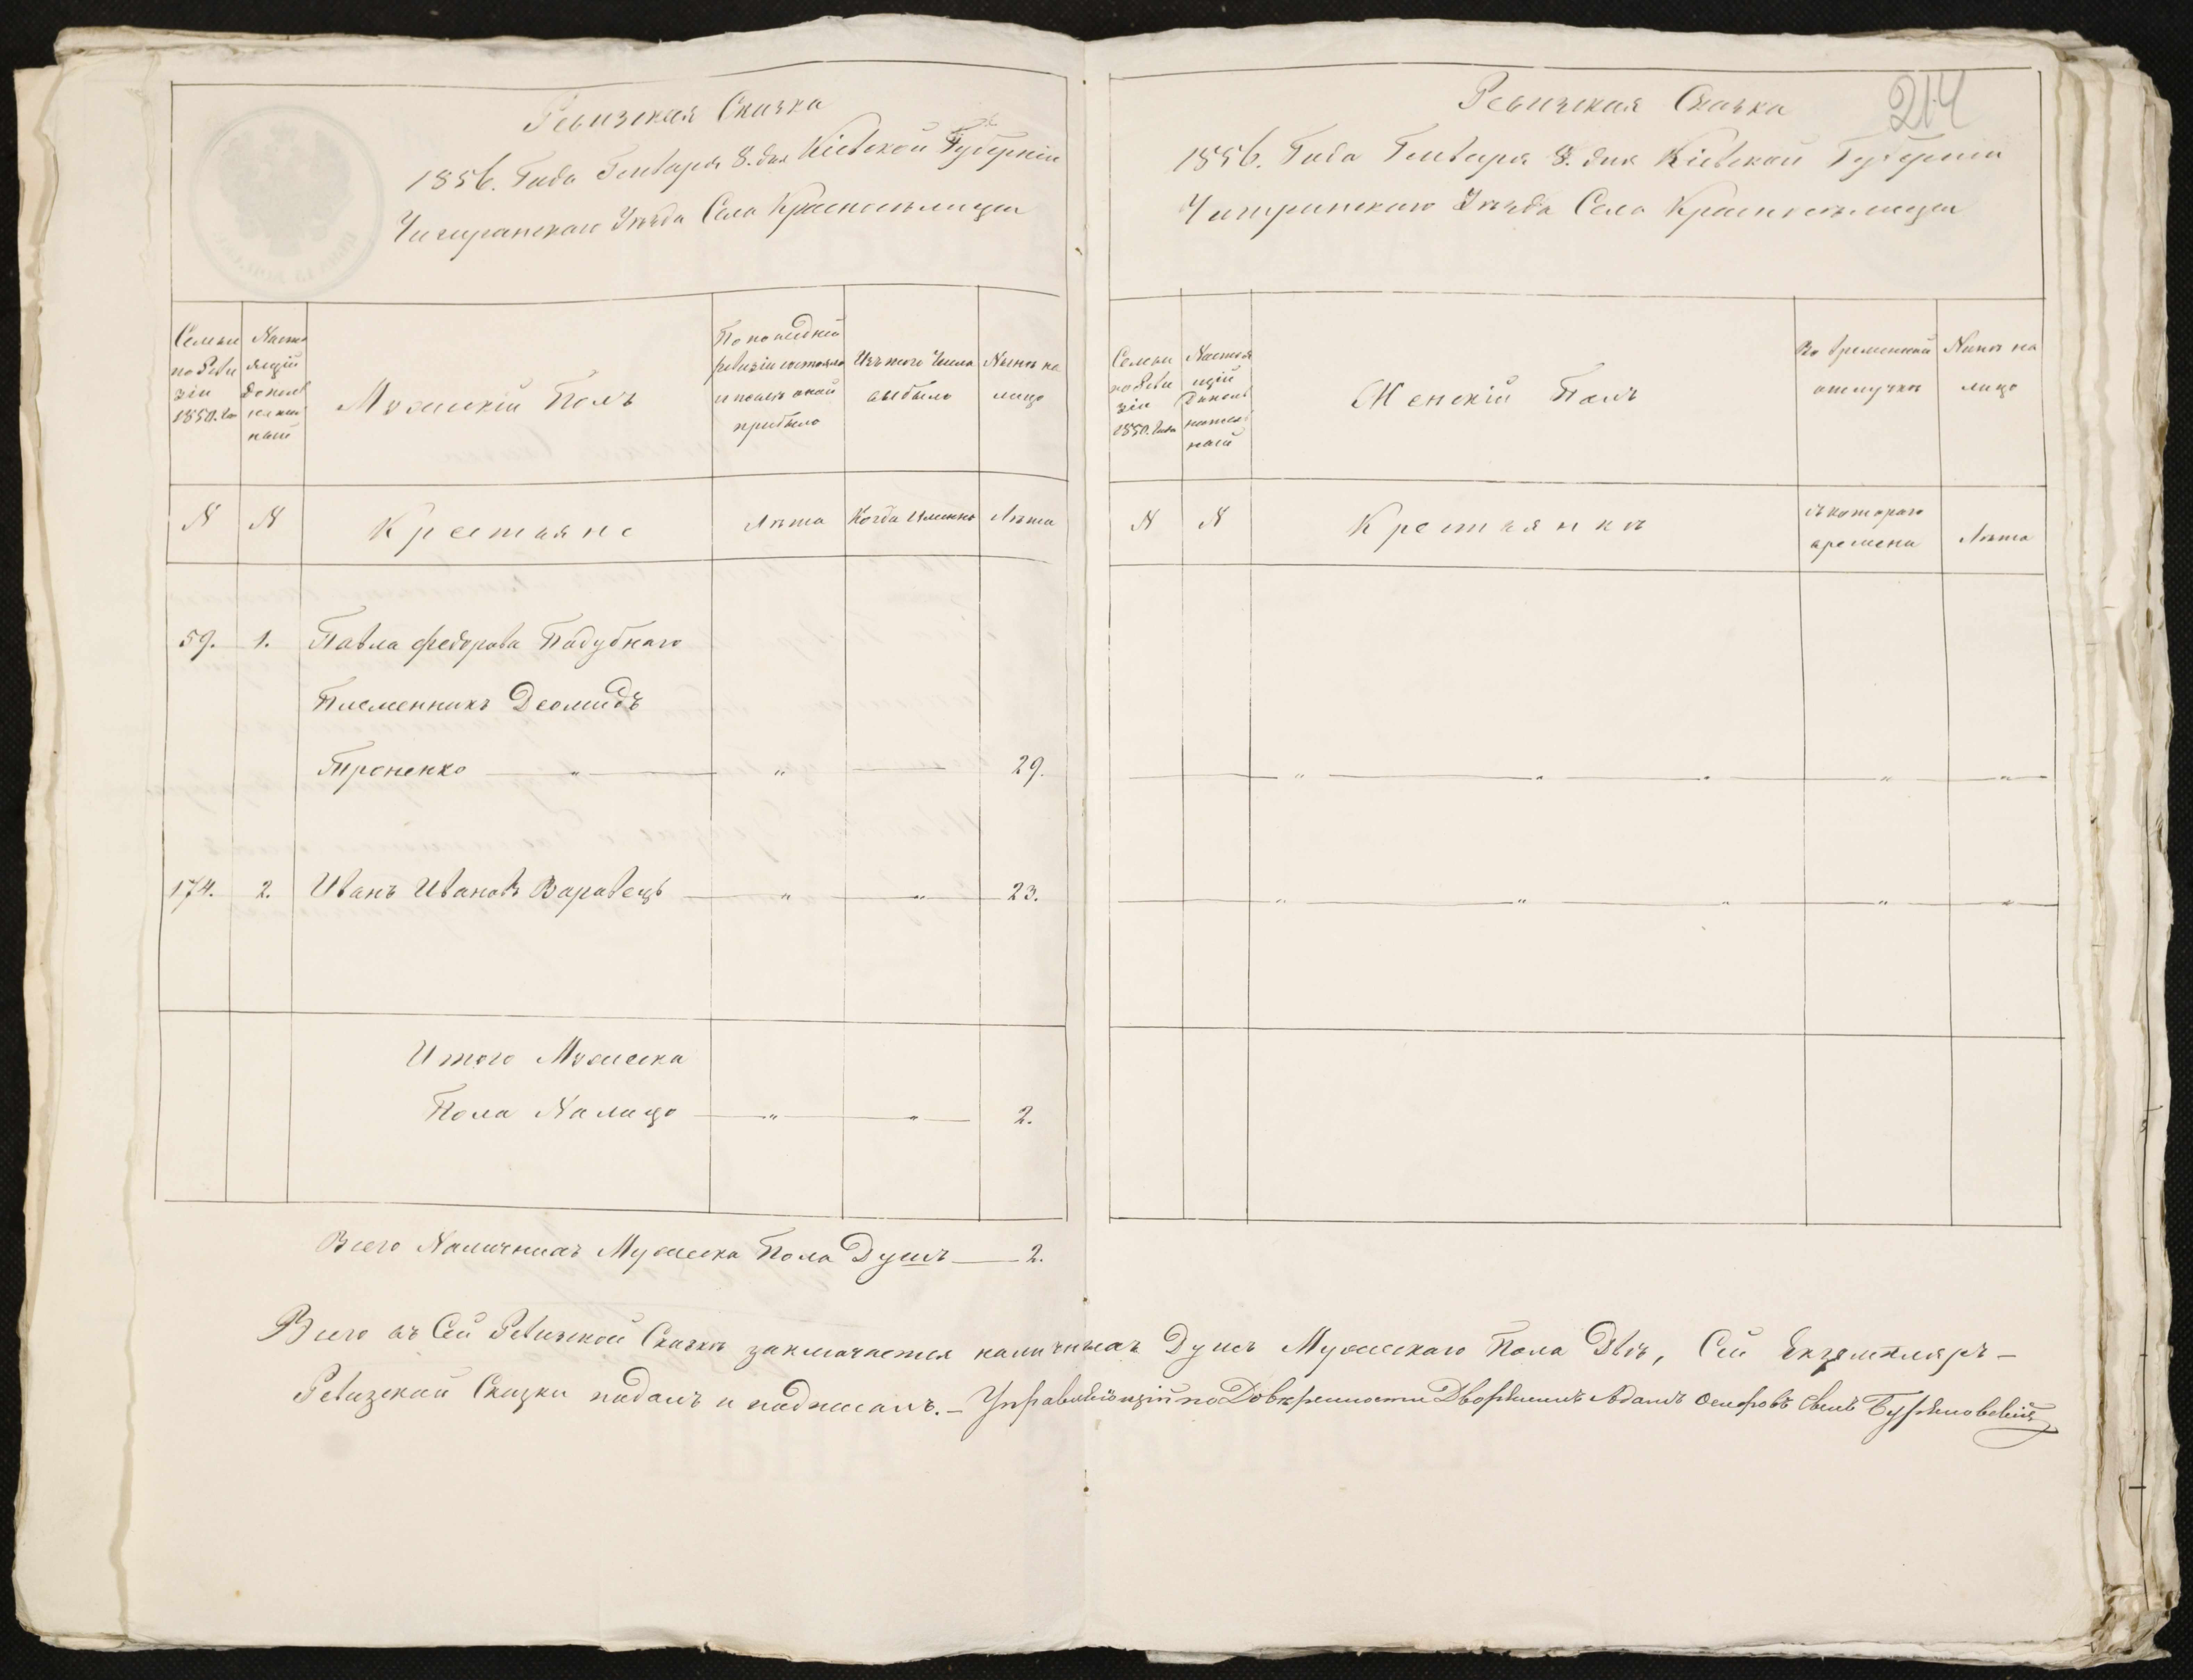 Ревизская Сказка
1856. Года Генваря 8. дня Кіевской Губерніи
Чигиринскаго Уезда Села Красноселицы
Семьи по Реви зіи 1850. Года
Насто ящій дополн ительн ный
Мужескій Полъ
По последней ревизіи состояло и после оной прибыло
Изъ того Числа выбыло
Ныне на лицо
N
N
Крестьяне
Лета
Когда Именно
Лета
59. 1. Павла Федорова Падубнаго
Племенникъ Деомидъ
Троненко — " — " — 29.
174. 2. Иванъ Ивановъ Варавецъ — " — " — 23.
Итого Мужеска
Пола Налицо — " — " — 2.
Всего Наличныхъ Мужеска Пола Душъ — 2.
214
Ревизская Сказка
1856. Года Генваря 8. дня Кіевской Губерніи
Чигиринскаго Уезда Села Красноселицы
Семьи по Реви зіи 1850. Года
Настоя щій дополн нитель ный
Женскій Полъ
Во временной отлучке
Ныне на лицо
N
N
Крестьянке
съ котораго времени
Лета
Всего въ Сей Ревизской Сказке заключается наличныхъ Душъ Мужескаго Пола Две, Сей Екземпляръ —
Ревизской Сказки подалъ и подписалъ. — Управляющій по Доверенности Дворянинъ Адамъ Осиповъ Сынъ